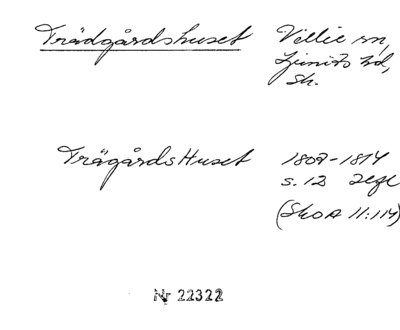 Trädgårdshuset Villie sn,
Ljunits hd,
Sk.
TrägårdsHuset 1809-1814
s. 12
(SkoA 11:114)
Nr 22322